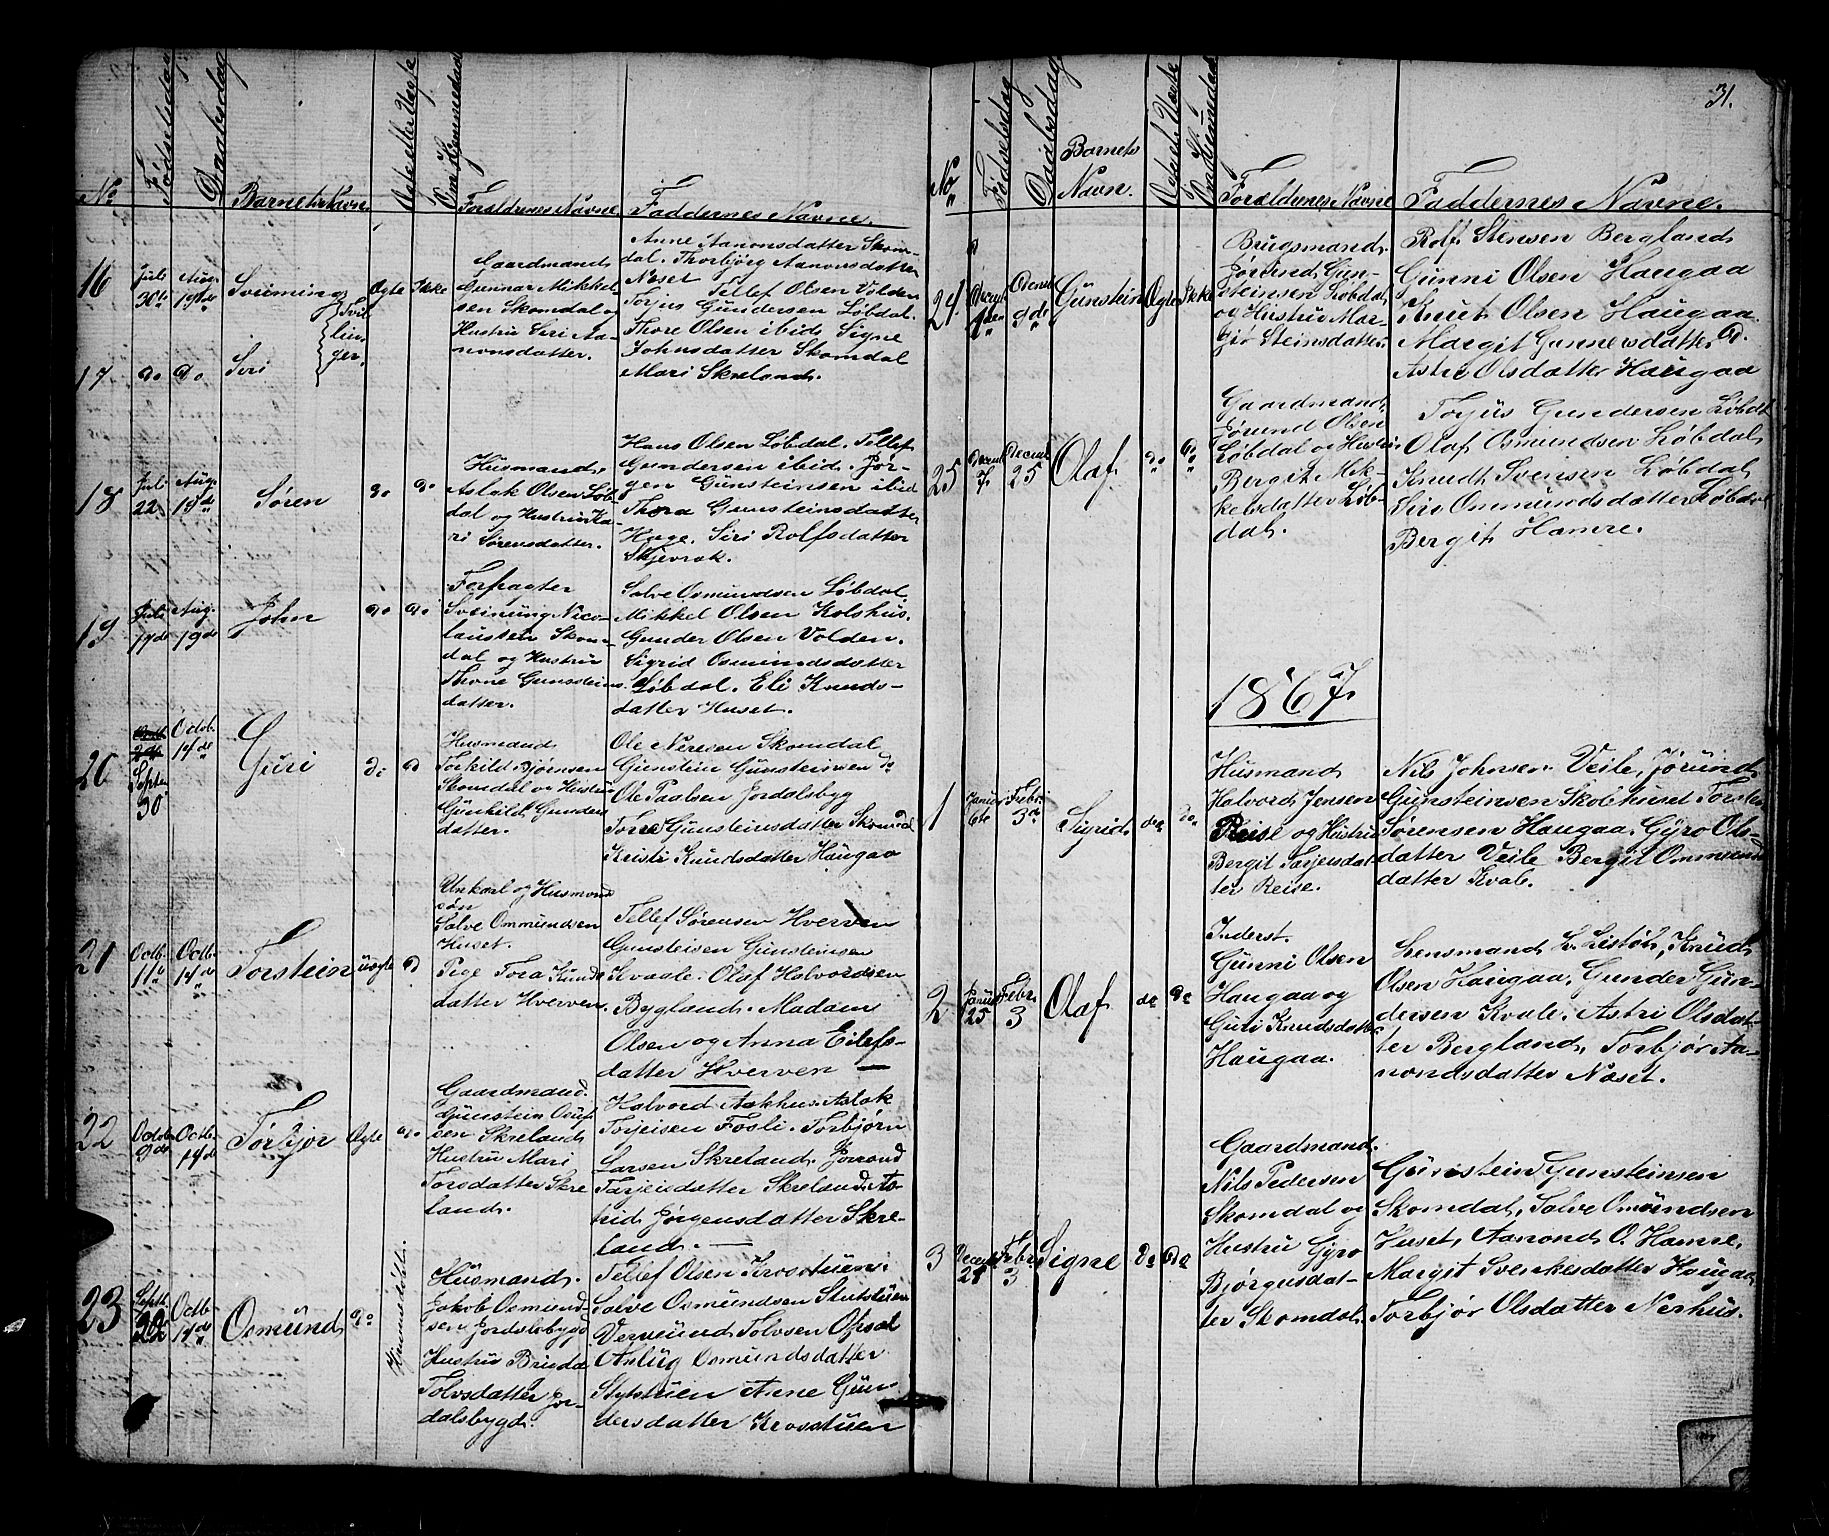 31.
No Fødselsdag Daabsdag Barnets Navn Ægte eller Uægte Om Hjemmedøbt Forældrenes Navne Faddernes Navne.
16 Juli 30te Aug. 19de Sveinung Ægte Ikke
Tvil-
lin-
ger
Gaardmand
Gunnar Mikkel-
sen Skomdal og
Hustru Siri Aa-
nonsdatter.
Anne Aanonsdatter Skom-
dal. Thorbjørg Aanonsdatter
Næset Tellef Olsen Volden
Torjus Gundersen Løbdal.
Thore Olsen ibid. Signe
Johnsdatter Skomdal
Mari Skreland.
17 do Do Siri
18 Juli 22 Aug. 19de Søren do do
Husmand,
Aslak Olsen Løb-
dal og Hustru Ka-
ri Sørensdatter.
Hans Olsen Løbdal. Tellef
Gundersen ibid. Jør-
gen Gunsteinsen ibid
Thora Gunsteinsdatter
Hage. Siri Rolfsdatter
Skjevrak.
19 Juli 17de Aug. 19de John do do
Forpagter
Sveinung Nico-
laussen Skom-
dal og Hustru
Thone Gunsteins-
datter.
Salve Osmundsen Løbdal.
Mikkel Olsen Kolshus.
Gunder Olsen Volden.
Sigrid Osmundsdatter
Løbdal. Eli Knuds-
datter Huset.
20 Septe 30 Octob. 14de Guri do D
Husmand
Torkild Bjørnsen
Skomdal og Hustru
Gunhild Gunders
datter.
Ole Neresen Skomdal
Gunstein Gunsteinsen do
Ole Paalsen Jordalsbyg
Torne Gunsteinsdatter Skomdal
Kristi Knudsdatter Haugaa
21 Octb. 11te Octb. 14de Torstein uægte D
Unkarl og Husmand
søn
Salve Ommundsen
Huset.
Pige Tora Knuds
datter Hverven.
Tellef Sørensen Hverven
Gunsteisen Gunsteinsen
Kvaale. Olaf Halvordsen
Bygland. Madam
Olsen og Anna Eilefs-
datter Hverven
22 Octob. 9de Octb. 14de Torbjør Ægte do
Gaardmand.
Gunstein Osuf-
sen Skreland
Hustru Mari
Torsdatter Skre
land.
Halvord Aakhus. Aslak
Torjeisen Fosli. Torbjørn
Larsen Skreland. Jorond
Tarjeisdatter Skreland. As-
trid Jørgensdatter Skre-
land.
23 Septb. 22 Octb. 14de Osmund do Hjemmedøbt.
Husmand.
Jakob Osmund
sen Jordalsbygd
Hustru Brita
Tolvsdatter Jor-
dalsbygd.
Tellef Olsen Krostuen.
Salve Osmundsen Stutstuen
Vermund Tolvsen Opsal
Anlug Osmundsdatter
Stytstuen Anne Gun-
dersdatter Krosstuen
No Fødselsdag Daabsdag Barnets Navn. Ægte el. Uægte Om Hjemmedøbt Forældrenes Navne Faddernes Navne.
24. Decemb 1den Decemb 9de Gunstein Ægte Ikke
Brugsmand.
Jørund Gun-
steinsen Løbdal,
og Hustru Mar-
gjør Steinsdatter.
Rolf Stensen Bergland
Gunni Olsen Haugaa
Knut Olsen Haugaa.
Margit Gunnersdatter D.
Astri Olsdatter Haugaa
25 Decemb 7. Decemb 25 Olaf do do
Gaardmand,
Jørund Olsen
Løbdal og Hustru
Bergit Mik-
kelsdatter Løb-
dal.
Torjus Gundersen Løbdl
Olaf Osmundsen Løbdal
Knudt Svensen Løbdal
Siri Ommundsdatter Løbdal
Bergit Hamre.
1867.
1 Januar 6te Febr. 3de Sigrid do do
Husmand
Halvord Jensen
Reise og Hustru
Bergit Tarjeisdat-
ter Reise.
Nils Johnsen Veile, Jørund
Gunsteinsen Skolhuset Torsten
Sørensen Haugaa. Gyro Ols-
datter Veile Bergit Ommunds
datter Kvale.
2 Januar 25 Febr. 3 Olaf do do
Inderst.
Gunni Olsen
Haugaa og
Guri Knudsdatter
Haugaa.
Lensmand L. Listøl, Knud
Olsen Haugaa, Gunder Gun-
dersen Kvale. Astri Olsdat-
ter Bergland, Torbjør Aa-
nondsdatter Næset.
3 Decemb 24 Febr. 3 Signe do do
Gaardmand.
Nils Pedersen
Skomdal og
Hustru Gyro
Bjørgusdat-
ter Skomdal.
Gunstein Gunsteinsen
Skomdal, Salve Omundsen
Huset, Aanond O. Hamre,
Margit Svenkesdatter Haugaa
Torbjør Olsdatter Nerhus.